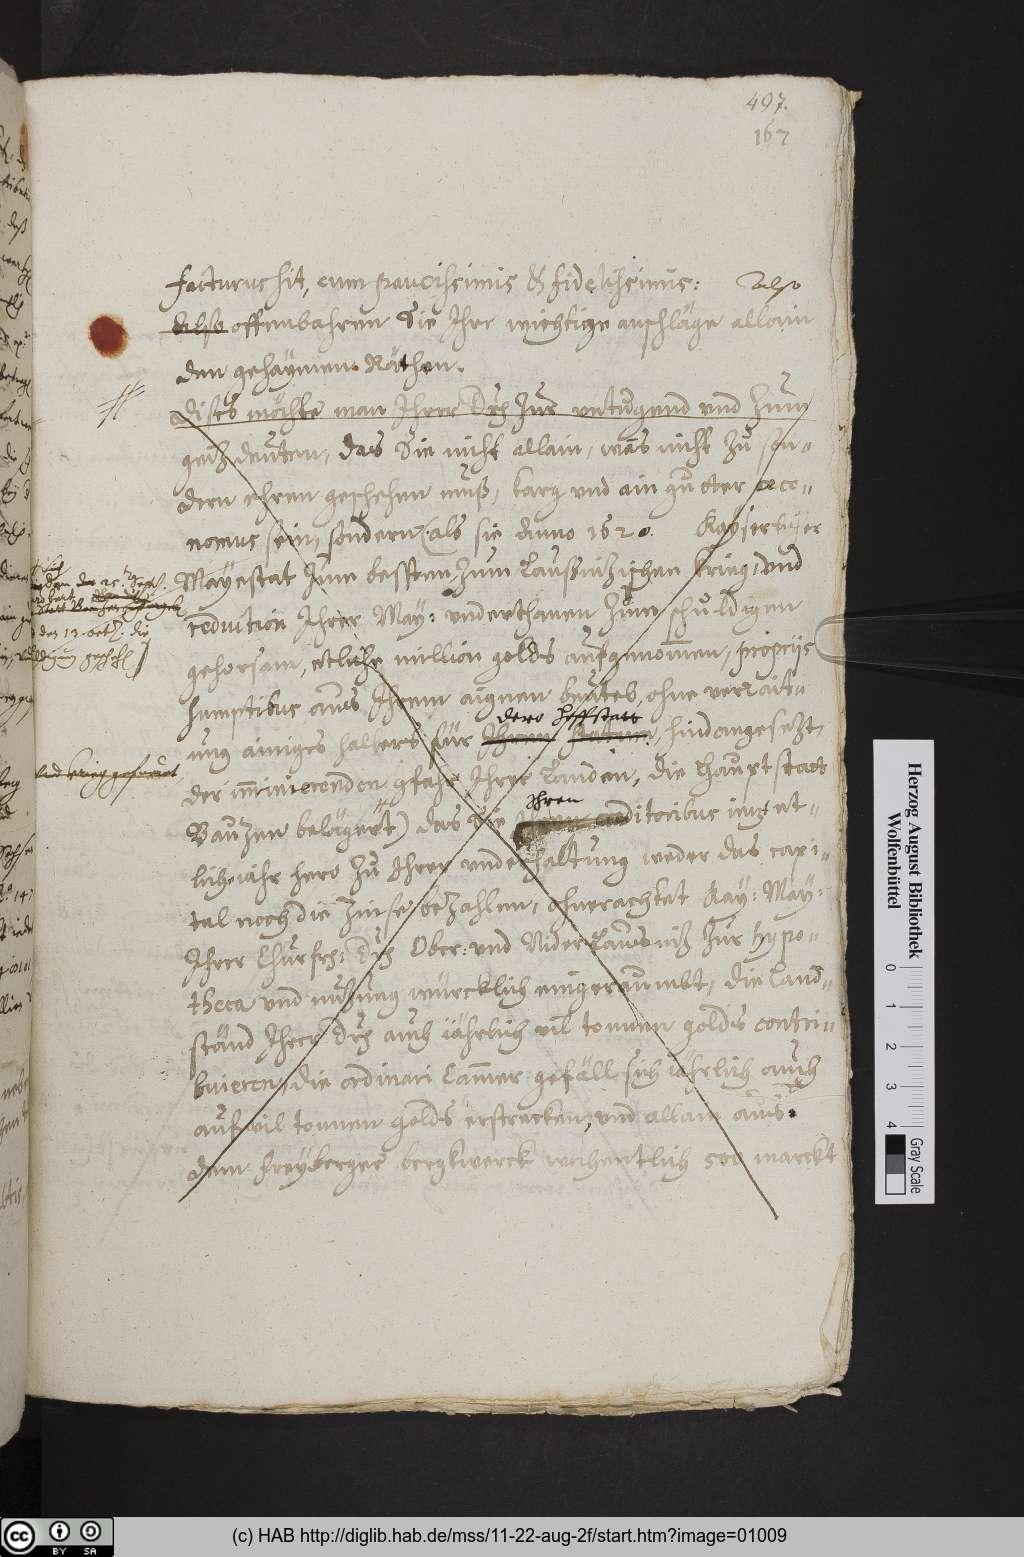 497.
167
facturus sit, cum paucissimis & fidelissimis: Also
Also offenbahren Sie Ihre wichtige anschläge allain
den gehaymen Räthen.
dises möchte man Ihrer Dht zur untugend und zum
geiz deuten, das Sie nicht allain, was nicht zu son-
dern ehren geschehen muß, karg und ain guetter oeco-
nomus sein, sondern (als sie anno 1620. Kayserlicher
Mayestat zum bessten, zum Laußnizischen krieg, und
reduction Ihrer May: underthanen zum schuldigen
gehorsam, etliche million golds aufgenommen, propriis
sumptibus aus Ihrem aignen beutel, ohne verrait-
ung ainiges hallers für dero hoffstatt, hindangesezt,
der imminierenden gfahr Ihrer Landen, die hauptstatt
Bauzen belägert) das Sie Ihren creditoribus inzet-
lich jahr hero zu Ihrer underhaltung weder das capi-
tal noch die zinse bezahlen, ohnerachtet Kay: May:
Ihrer Churfrh: Dht Ober- und Nider Lausniz zur hypo-
theca und nuzung würcklich eingeraumbt, die Land-
ständ Ihrer Dht auch jährlich vil tonnen golds contri-
buieren, die ordinari Cammer gefäll sich jährlich auch
auf vil tonnen golds erstrecken, und allain aus
dem Freyberger bergkwerck wochentlich 500 marckt
den 25. Sept.
den 12. octb. die
und krieg gefreut
Herzog August Bibliothek
Wolfenbüttel
0 1 2 3 4
Gray Scale
(c) HAB http://diglib.hab.de/mss/11-22-aug-2f/start.htm?image=01009
cc BY SA